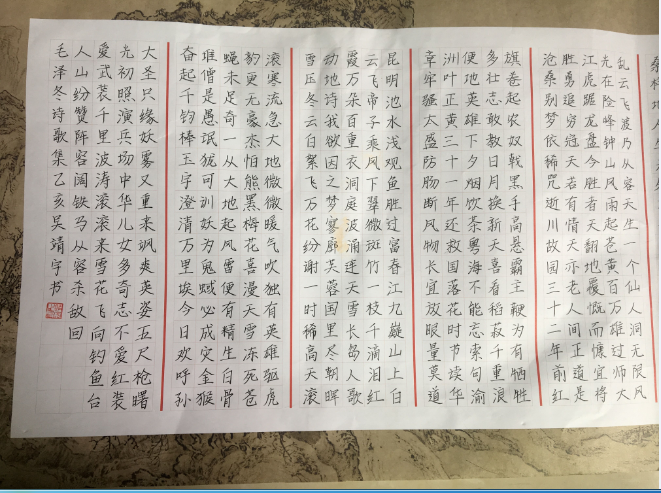 乱云飞渡乃从容天生一个仙人洞无限风
光在险峰钟山风雨起苍黄百万雄过师大
江虎踞龙盘今胜昔天翻地覆慨而慷宜将
胜勇追穷寇天若有情天亦老人间正道是
沧桑别梦依稀咒逝川故园三十二年前红
旗卷起农奴戟黑手高悬霸主鞭为有牺牲
多壮志敢教日月换新天喜看稻菽千重浪
便地英雄下夕烟饮茶粤海不能忘索句渝
洲叶正黄三十一年还救国落花时节读华
章牢骚太盛防肠断风物长宜放眼量莫道
昆明池水浅观鱼胜过富春江九嶷山上白
云飞帝子乘风下翠微斑竹一枝千滴泪红
霞万朵百重衣洞庭波涌连天雪长岛人歌
动地诗我欲因之梦寥廓芙蓉国里尽朝晖
雪压冬云白絮飞万花纷谢一时稀高天滚
滚寒流急大地微微暖气吹独有英雄驱虎
豹更无豪杰怕熊罴梅花喜漫天雪冻死苍
蝇未足奇一从大地起风雷便有精生白骨
堆僧是愚氓犹可训妖为鬼蜮必成灾金猴
奋起千钧棒玉宇澄清万里埃今日欢呼孙
大圣只缘妖雾又重来飒爽英姿五尺枪曙
光初照演兵场中华儿女多奇志不爱红装
爱武装千里波涛滚滚来雪花飞向钓鱼台
人山纷赞阵容阔铁马从容杀敌回
毛泽东诗歌集乙亥吴靖宇书